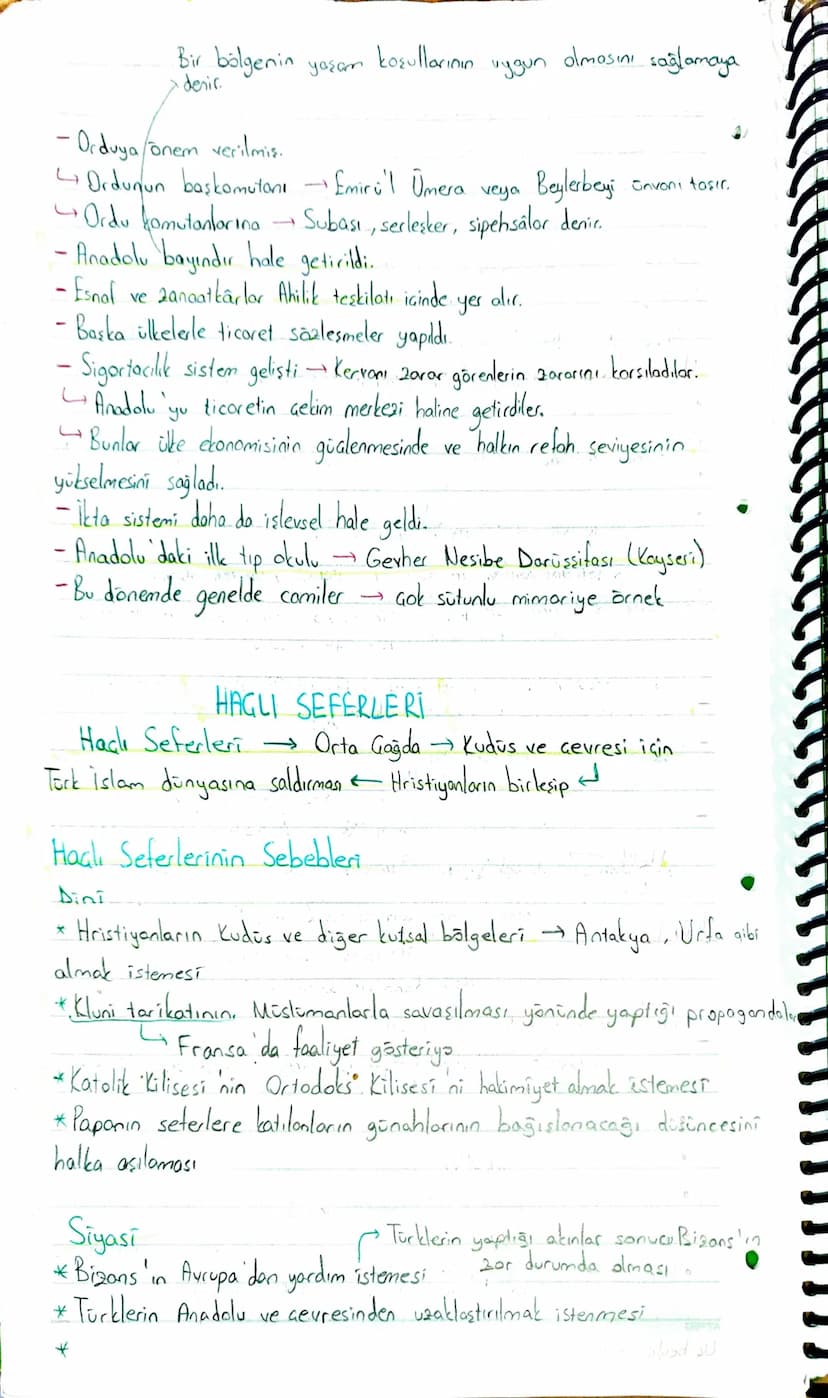 Bir bölgenin yaşam koşullarının uygun olmasını sağlamaya
denir.
- Orduya önem verilmiş.
↳ Ordunun başkomutanı → Emirü'l Ümera veya Beylerbeyi ünvanı taşır.
↳ Ordu komutanlarına → Subaşı, serleşker, sipehsâlar denir.
- Anadolu bayındır hale getirildi.
- Esnaf ve zanaatkârlar Ahilik teşkilatı içinde yer alır.
- Başka ülkelerle ticaret sözleşmeler yapıldı.
- Sigortacılık sistem gelişti → Kervanı zarar görenlerin zararını karşıladılar.
↳ Anadolu'yu ticaretin çekim merkezi haline getirdiler.
↳ Bunlar ülke ekonomisinin güçlenmesinde ve halkın refah seviyesinin
yükselmesini sağladı.
- İkta sistemi daha da işlevsel hale geldi.
- Anadolu'daki ilk tıp okulu → Gevher Nesibe Darüşşifası (Kayseri)
- Bu dönemde genelde camiler → çok sütunlu mimariye örnek
HAÇLI SEFERLERİ
Haçlı Seferleri → Orta Çağda → Kudüs ve çevresi için
Türk İslam dünyasına saldırması ← Hristiyanların birleşip ↲
Haçlı Seferlerinin Sebebleri
Dini
* Hristiyanların Kudüs ve diğer kutsal bölgeleri → Antakya, Urfa gibi
almak istemesi
* Kluni tarikatının, Müslümanlarla savaşılması yönünde yaptığı propagandalar
↳ Fransa'da faaliyet gösteriyo
* Katolik Kilisesi'nin Ortodoks Kilisesi'ni hakimiyet almak istemesi
* Papanın seferlere katılanların günahlarının bağışlanacağı düşüncesini
halka aşılaması
Siyasi
↱ Türklerin yaptığı akınlar sonucu Bizans'ın
zor durumda olması
* Bizans'ın Avrupa'dan yardım istemesi
* Türklerin Anadolu ve çevresinden uzaklaştırılmak istenmesi
*